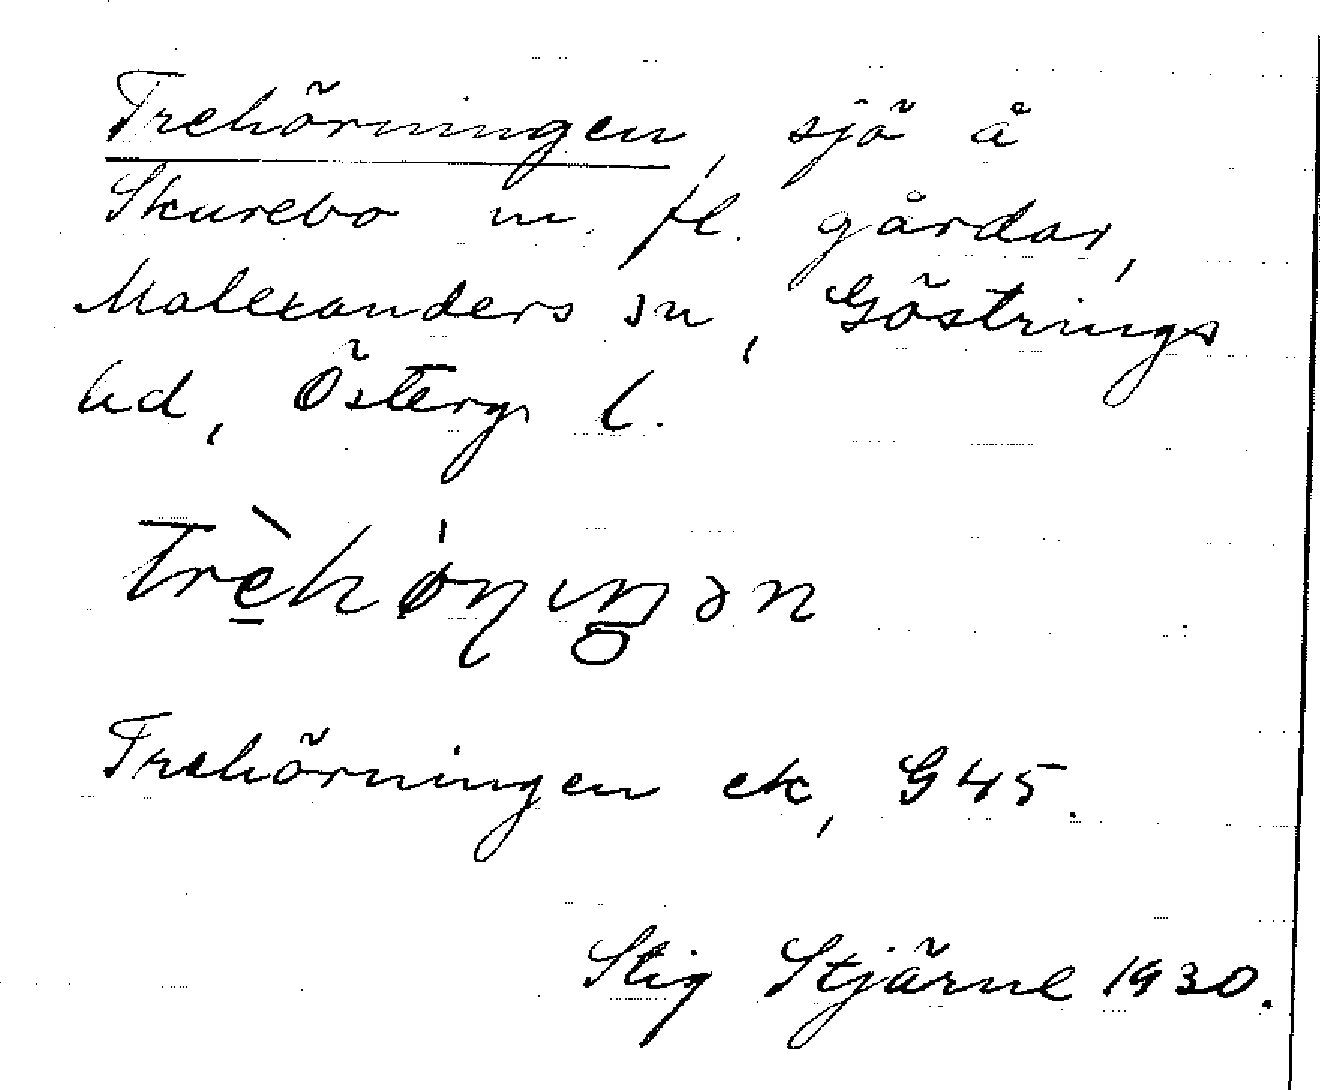 Trehörningen, sjö å
Skurebo m. fl. gårdar,
Malexanders sn, Göstrings
hd, Österg. l.
Trèhǿṇɩŋən
Trehörningen ek, G45.
Stig Stjärne 1930.